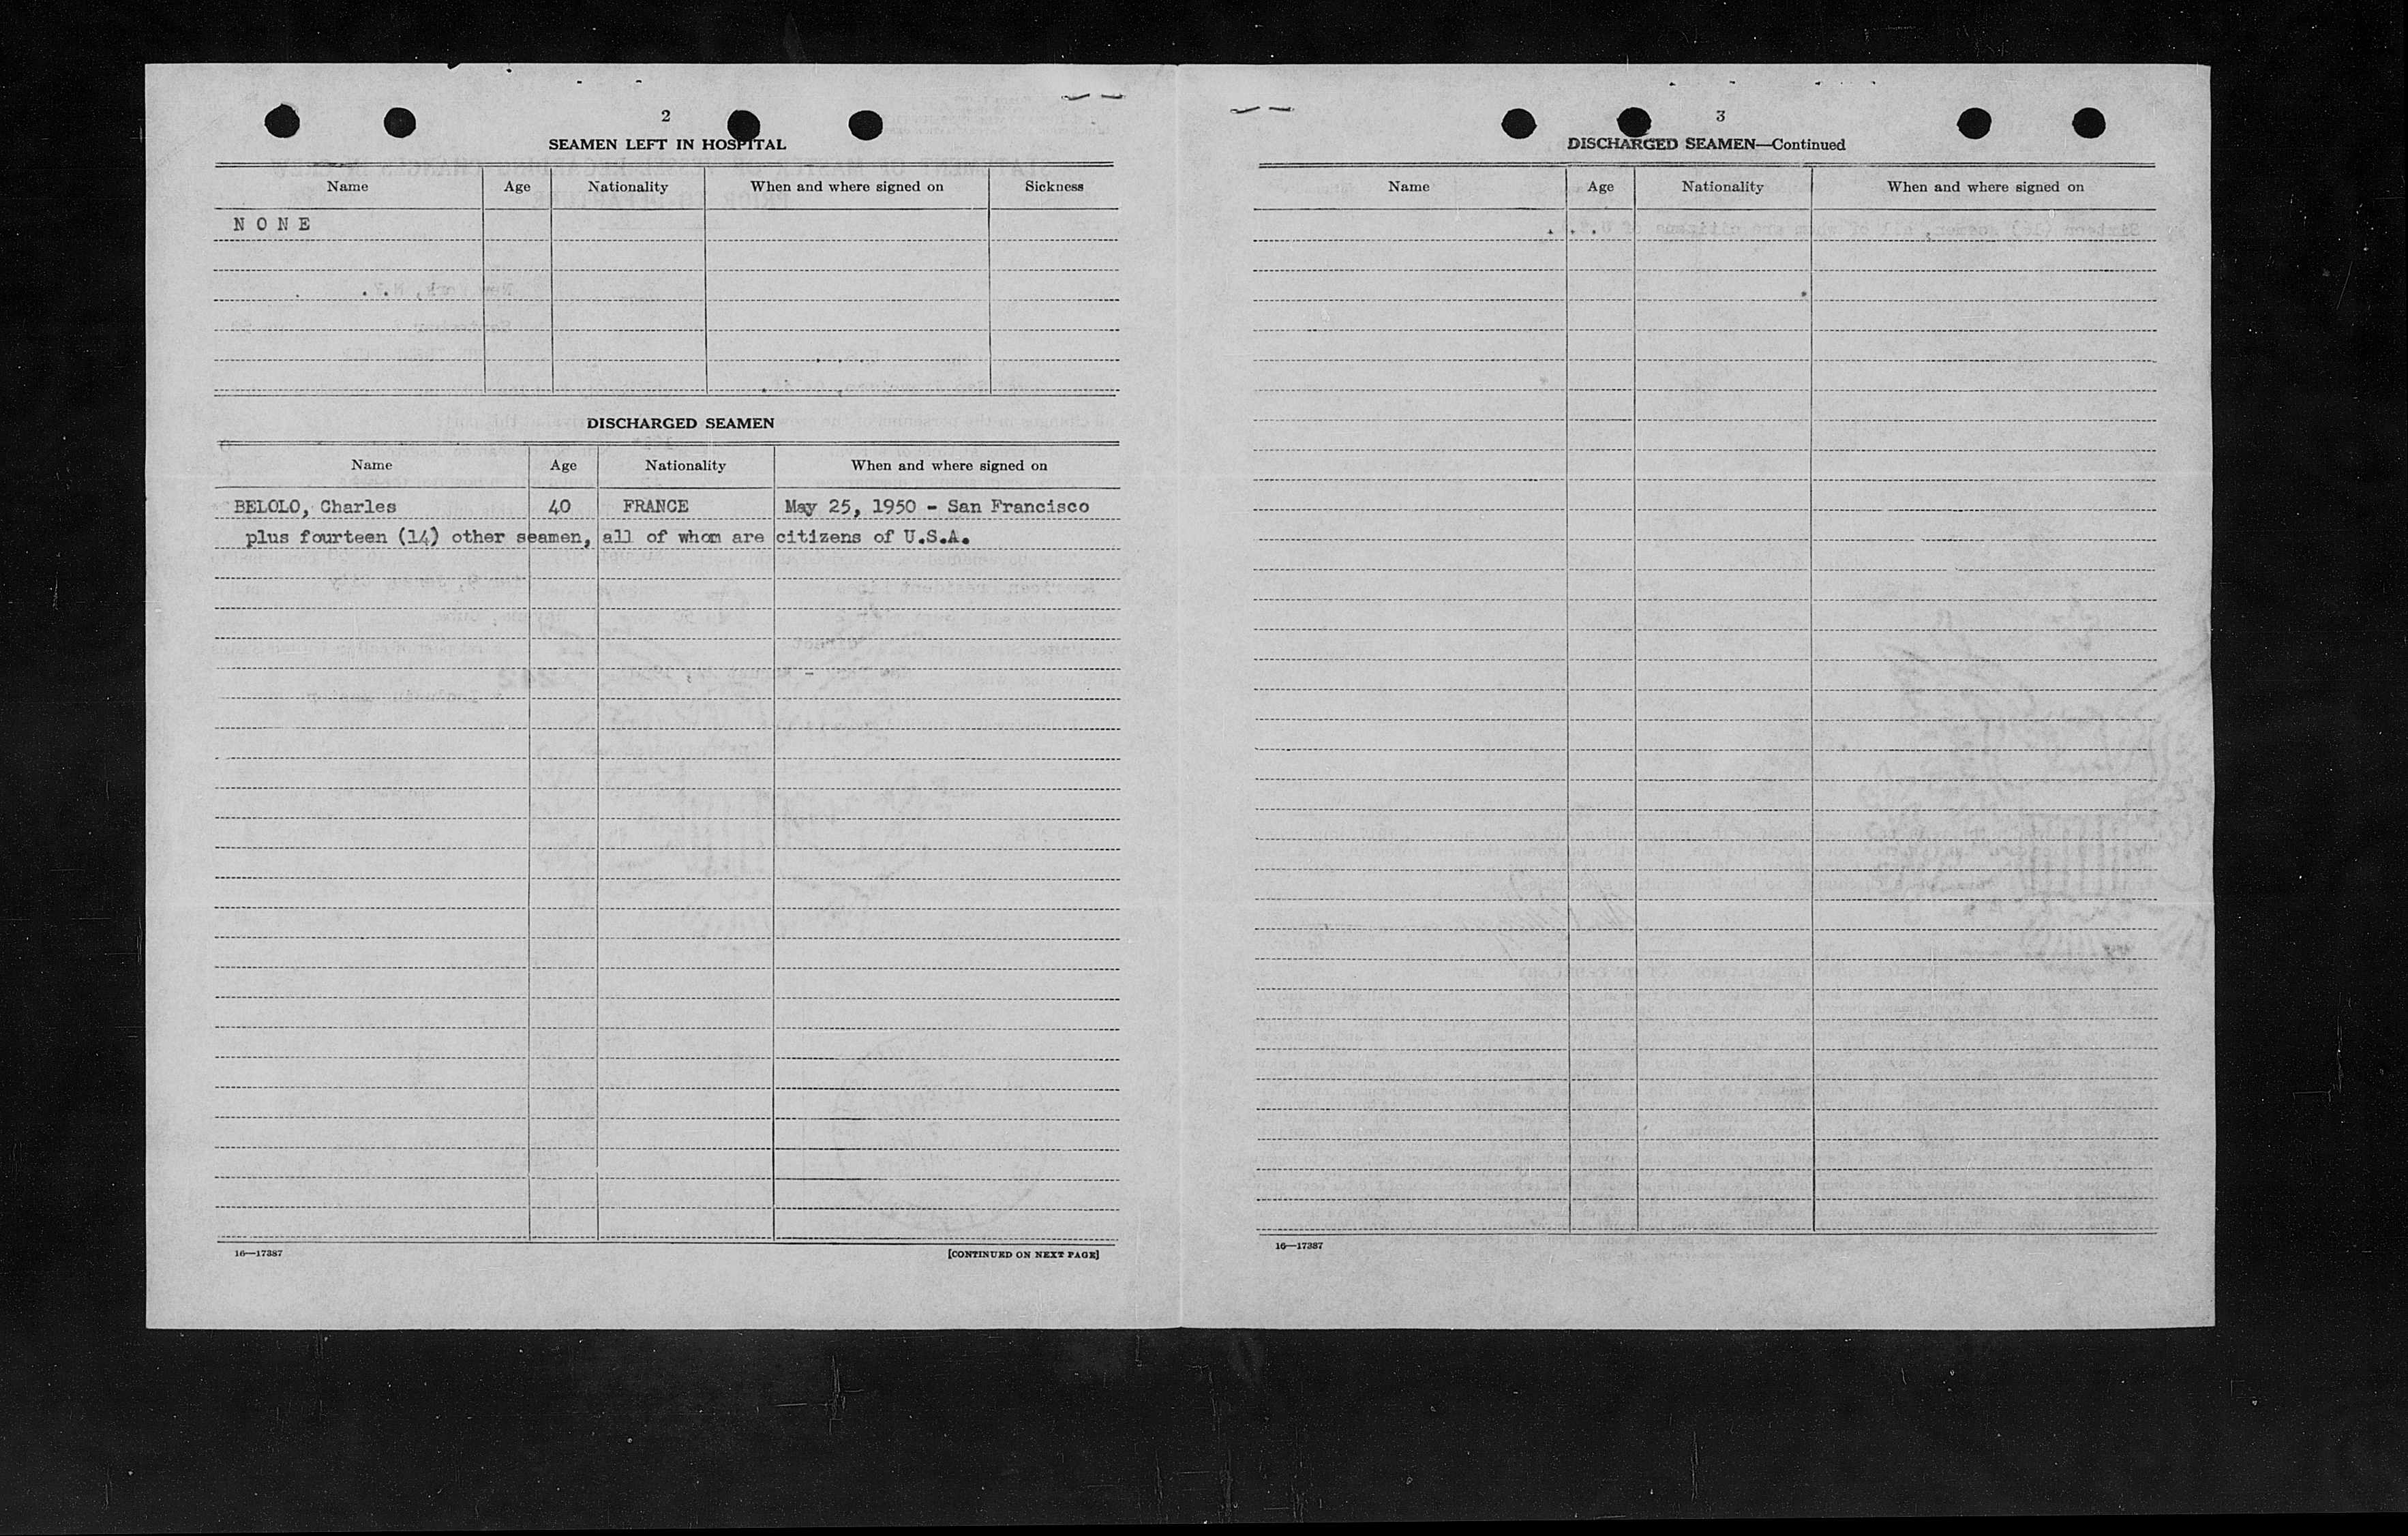 2
SEAMEN LEFT IN HOSPITAL
Name Age Nationality When and where signed on Sickness
N O N E
DISCHARGED SEAMEN
Name Age Nationality When and where signed on
BELOLO, Charles 40 FRANCE May 25, 1950 - San Francisco
plus fourteen (14) other seamen, all of whom are citizens of U.S.A.
16—17387 [CONTINUED ON NEXT PAGE]
3
DISCHARGED SEAMEN—Continued
Name Age Nationality When and where signed on
16—17387